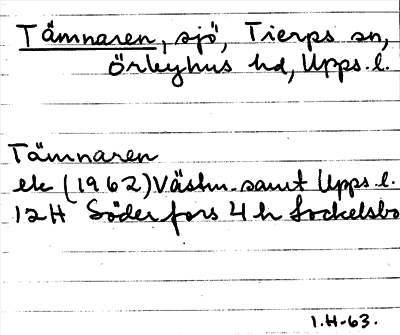 Tämnaren, sjö, Tierps sn,
Örbyhus hd, Upps. l.
Tämnaren
ek (1962) Västm. samt Upps. l.
12H Söderfors 4h Sockelsbo
1.H-63.